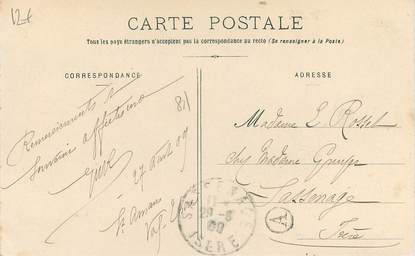 12€
CARTE POSTALE
Tous les pays étrangers n'acceptent pas la correspondance au recto (Se renseigner à la Poste)
CORRESPONDANCE
ADRESSE
Remerciements &
Souvenirs affectueux
27 août 09
St Amans
Madame E Rossel
chez Madame
Sassenage
Isère
A
ISERE